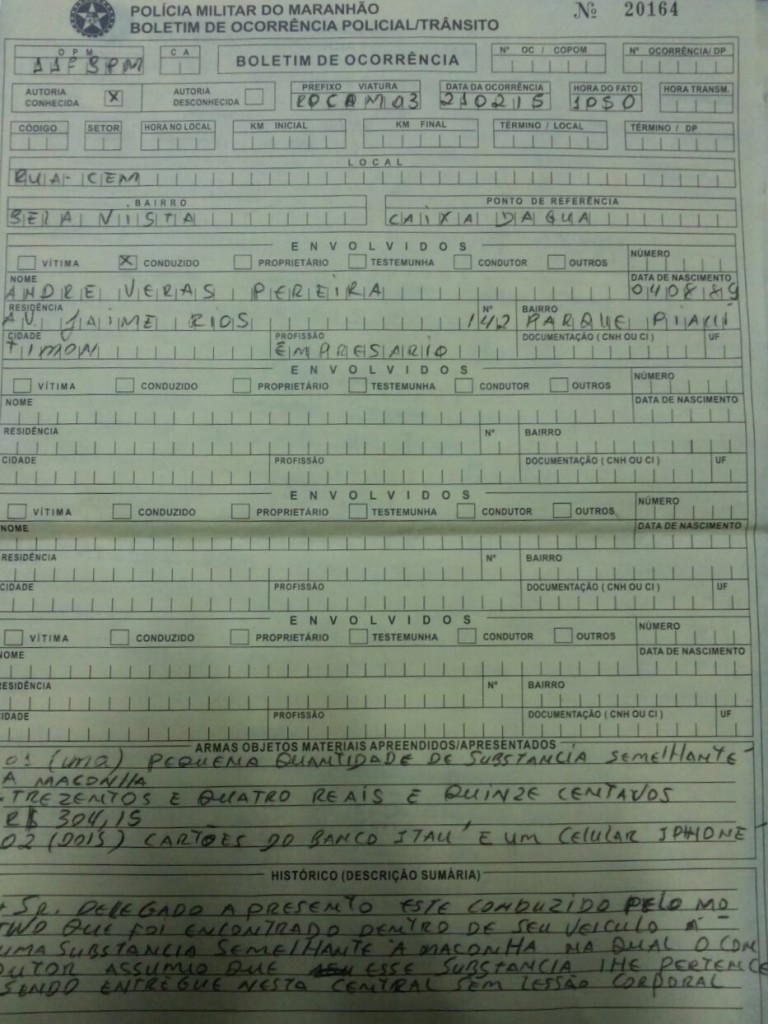 POLÍCIA MILITAR DO MARANHÃO
BOLETIM DE OCORRÊNCIA POLICIAL/TRÂNSITO
Nº 20164
O P M
11º BPM
C A
BOLETIM DE OCORRÊNCIA
Nº OC / COPOM
Nº OCORRÊNCIA/DP
AUTORIA CONHECIDA X
AUTORIA DESCONHECIDA
PREFIXO VIATURA
ROCAM 03
DATA DA OCORRÊNCIA
210215
HORA DO FATO
1050
HORA TRANSM.
CÓDIGO SETOR HORA NO LOCAL KM INICIAL KM FINAL TÉRMINO / LOCAL TÉRMINO / DP
LOCAL
RUA-CEM
BAIRRO
BELA VIISTA
PONTO DE REFERÊNCIA
CAIXA DAGUA
ENVOLVIDOS
VÍTIMA X CONDUZIDO PROPRIETÁRIO TESTEMUNHA CONDUTOR OUTROS NÚMERO
NOME DATA DE NASCIMENTO
ANDRE VERAS PEREIRA 040889
RESIDÊNCIA Nº BAIRRO
AV. JAIME RIOS 142 PARQUE PIAUÍ
CIDADE PROFISSÃO DOCUMENTAÇÃO ( CNH OU CI ) UF
TIMON EMPRESARIO
ENVOLVIDOS
VÍTIMA CONDUZIDO PROPRIETÁRIO TESTEMUNHA CONDUTOR OUTROS NÚMERO
NOME DATA DE NASCIMENTO
RESIDÊNCIA Nº BAIRRO
CIDADE PROFISSÃO DOCUMENTAÇÃO ( CNH OU CI ) UF
ENVOLVIDOS
VÍTIMA CONDUZIDO PROPRIETÁRIO TESTEMUNHA CONDUTOR OUTROS NÚMERO
NOME DATA DE NASCIMENTO
RESIDÊNCIA Nº BAIRRO
CIDADE PROFISSÃO DOCUMENTAÇÃO ( CNH OU CI ) UF
ENVOLVIDOS
VÍTIMA CONDUZIDO PROPRIETÁRIO TESTEMUNHA CONDUTOR OUTROS NÚMERO
NOME DATA DE NASCIMENTO
RESIDÊNCIA Nº BAIRRO
CIDADE PROFISSÃO DOCUMENTAÇÃO ( CNH OU CI ) UF
ARMAS OBJETOS MATERIAIS APREENDIDOS/APRESENTADOS
01 (UMA) PEQUENA QUANTIDADE DE SUBSTANCIA SEMELHANTE
A MACONHA
- TREZENTOS E QUATRO REAIS E QUINZE CENTAVOS
R$ 304,15
02 (DOIS) CARTÕES DO BANCO ITAU' E UM CELULAR IPHONE
HISTÓRICO (DESCRIÇÃO SUMÁRIA)
SR. DELEGADO APRESENTO ESTE CONDUZIDO PELO MO
TIVO QUE FOI ENCONTRADO DENTRO DE SEU VEICULO
UMA SUBSTANCIA SEMELHANTE A MACONHA NA QUAL O CON
DUTOR ASSUMIO QUE ESSE SUBSTANCIA LHE PERTENCE
SENDO ENTREGUE NESTA CENTRAL SEM LESSÃO CORPORAL